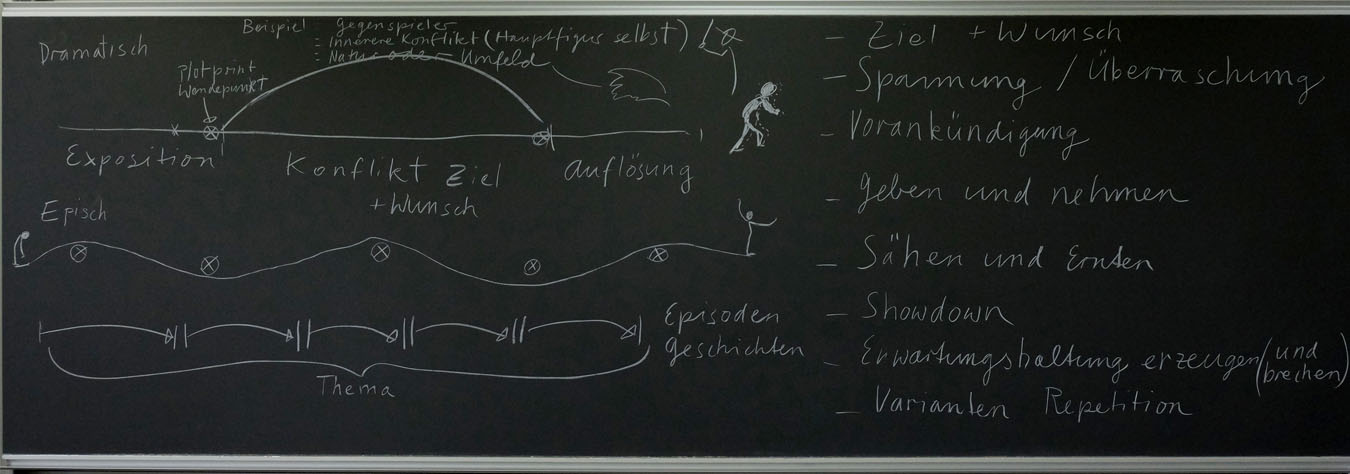 Dramatisch
Beispiel Gegenspieler
- Innerere Konflikt (Hauptfigur selbst)
- Natur oder Umfeld
Plotprint
Wendepunkt
Exposition
Konflikt Ziel
+ Wunsch
Auflösung
Episch
Episoden
Geschichten
Thema
- Ziel + Wunsch
- Spannung / Überraschung
- Vorankündigung
- Geben und nehmen
- Sähen und Ernten
- Showdown
- Erwartungshaltung erzeugen (und
brechen)
- Varianten Repetition